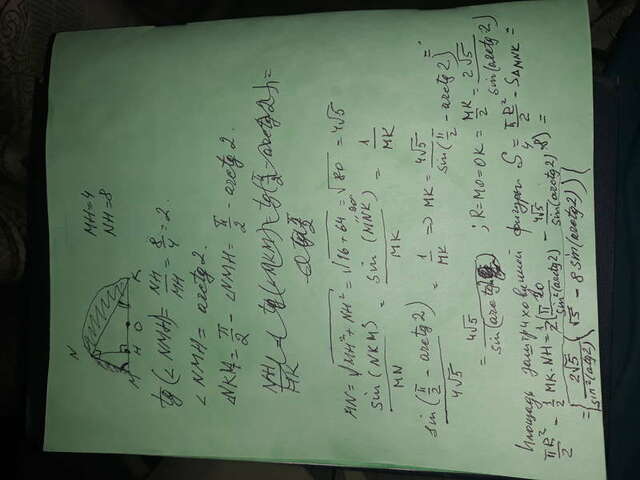 N
MH=4
NH=8
M H O K
tg(∠NMH)= NH/MH = 8/4 = 2.
∠NMH = arctg 2.
∠NKM= π/2 - ∠NMH = π/2 - arctg 2.
NH/MK
MN= √(MH²+NH²) = √(16+64) = √80 = 4√5
sin(NKM)/MN = sin(MNK)/MK = 1/MK
90°
sin(π/2 - arctg 2)/4√5 = 1/MK => MK = 4√5/sin(π/2 - arctg 2) =
= 4√5/sin(arctg) ; R=MO=OK= MK/2 = 2√5/sin(arctg 2)
Площадь заштрихованной фигуры S = πR²/2 - S△MNK =
πR²/2 - 1/2 MK·NH = 1/2(π 20/sin²(arctg 2) - 4√5/sin(arctg 2) ·8) =
= 2√5/sin²(arctg 2) (√5 - 8 sin(arctg 2))